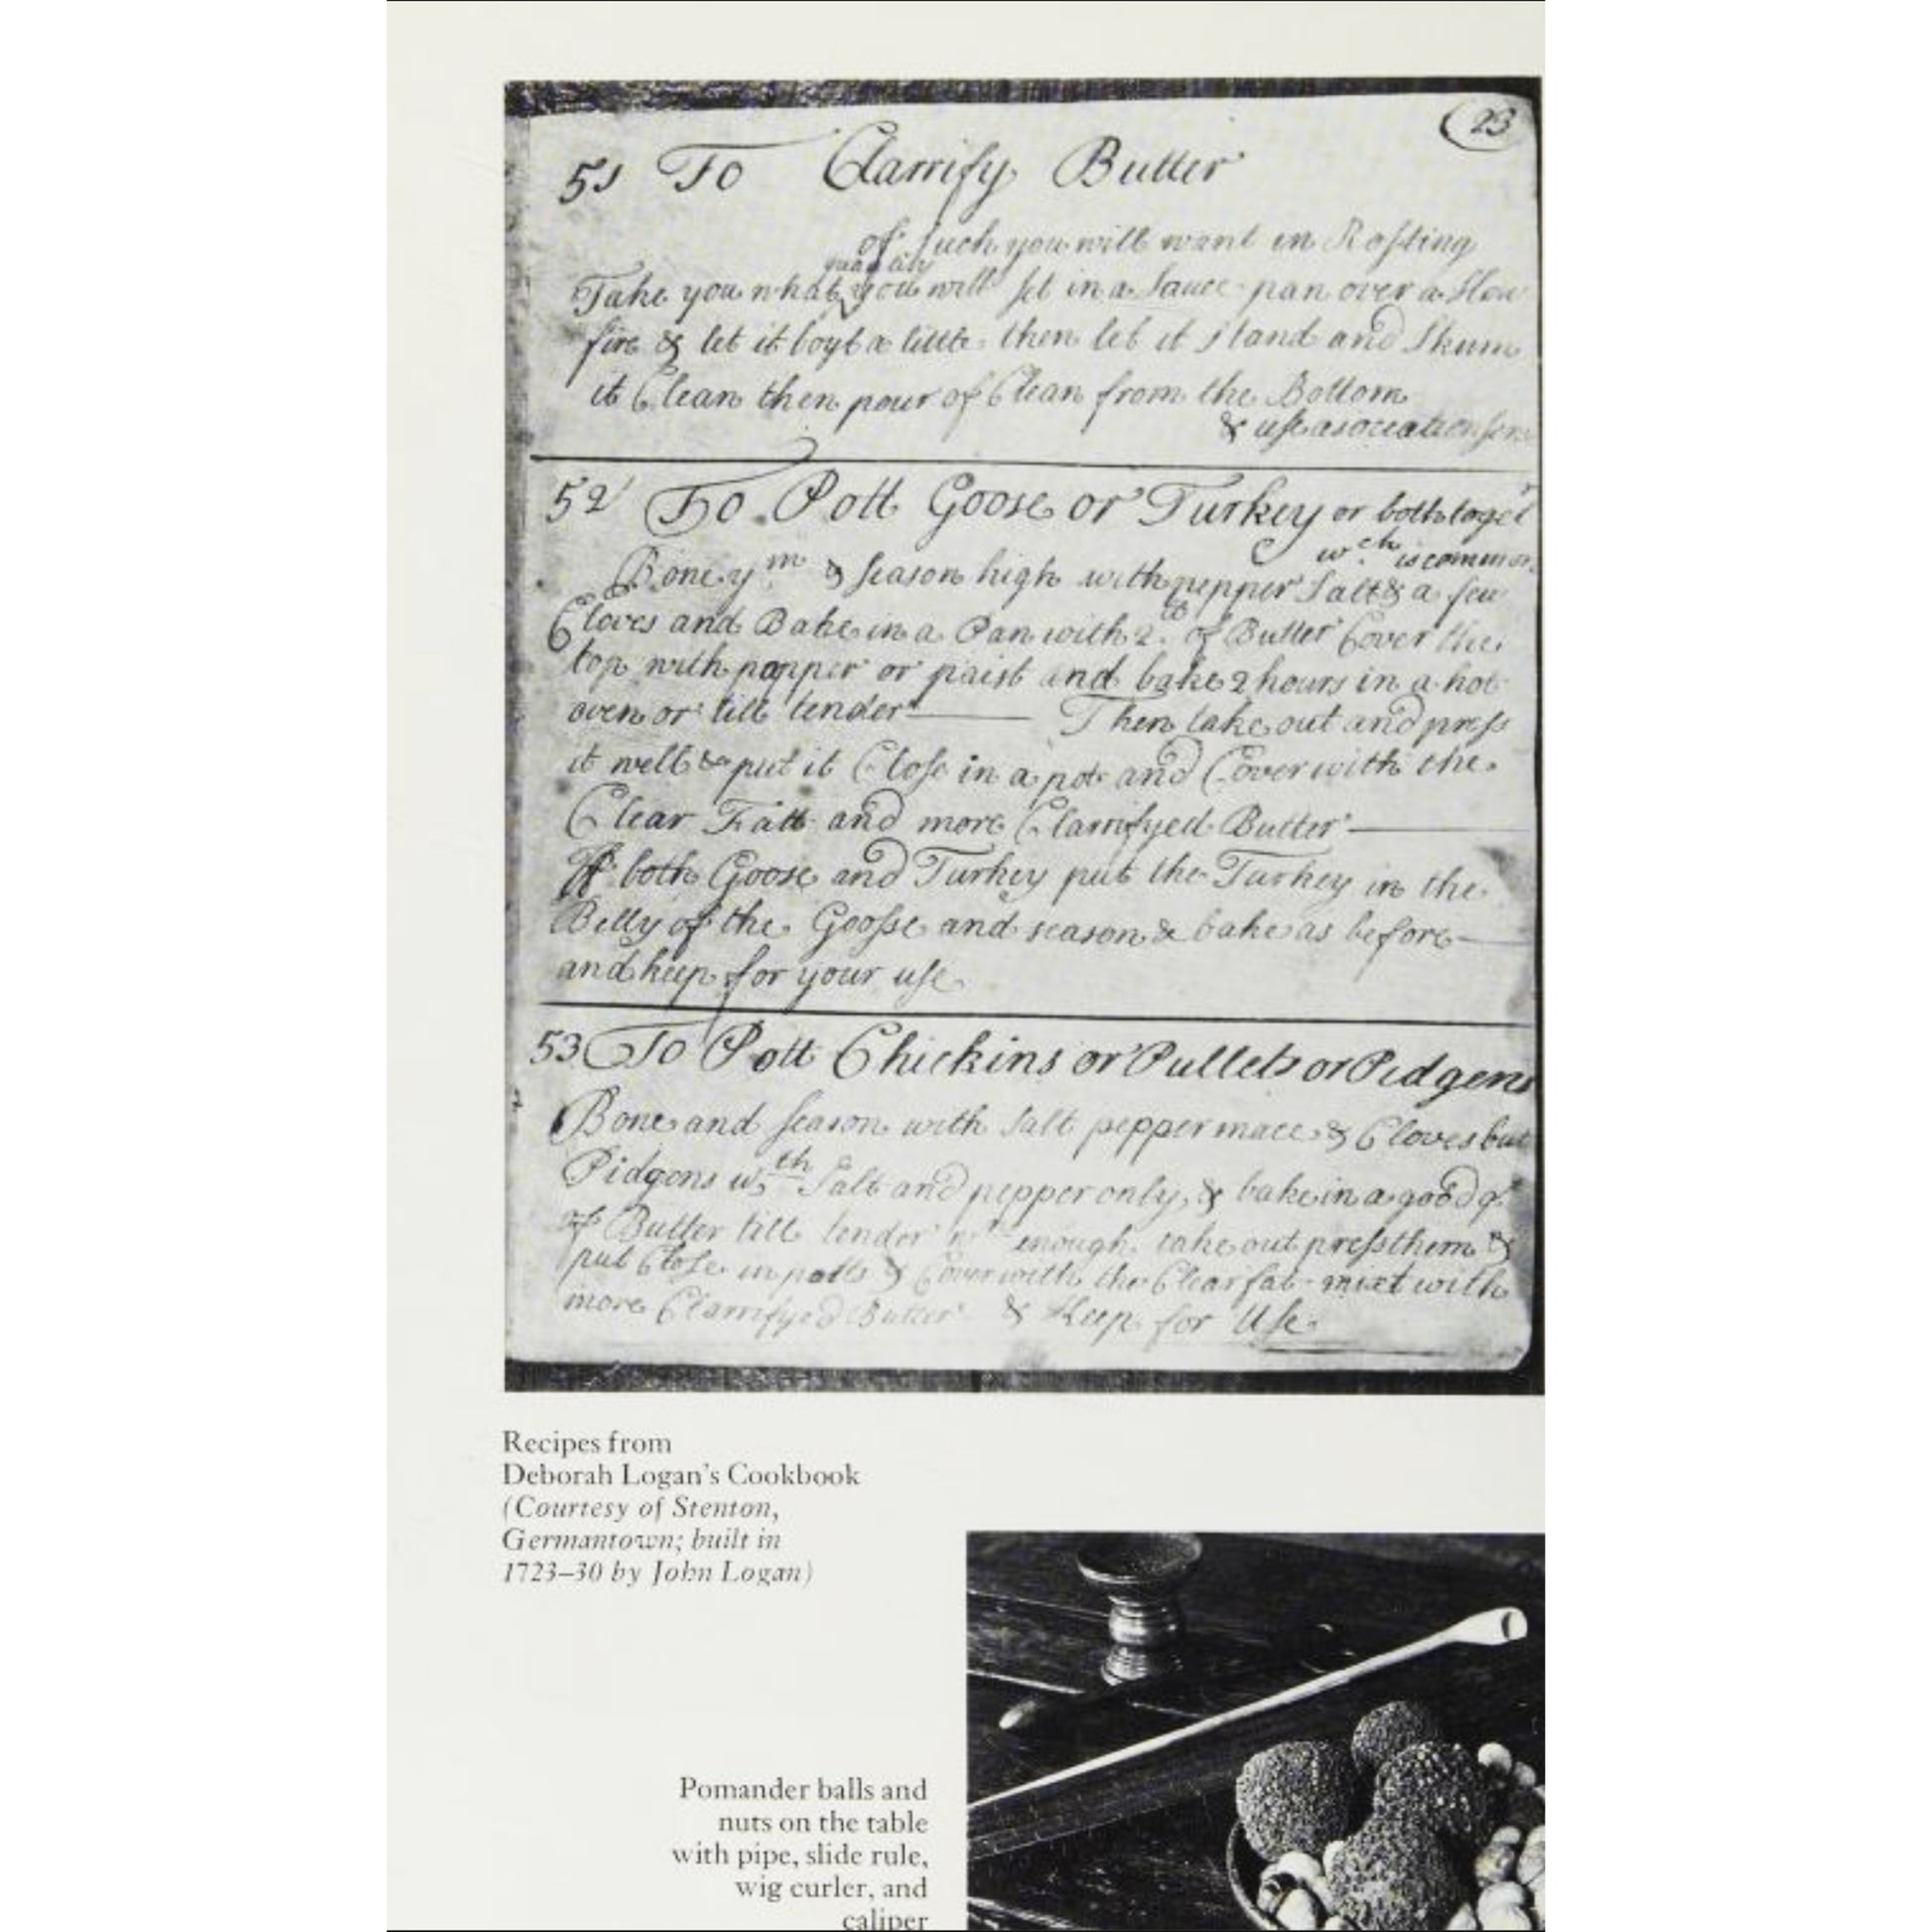 23
51 To Clarrify Butter
of such you will want in Rosting
quantity
Take you what you will set in a Sauce pan over a Slow
fire & let it boyl a little then let it stand and Skum
it Clean then pour of Clean from the Bottom
& use as occation
52 To Pott Goose or Turkey or both toger
wch is common
Bone ym & season high with pepper Salt & a few
Cloves and Bake in a Pan with 2lb of Butter Cover the
top with papper or paist and bake 2 hours in a hot
oven or till tender — Then take out and press
it well & put it Close in a pot and Cover with the
Clear Fatt and more Clarrifyed Butter —
If both Goose and Turkey put the Turkey in the
Belly of the Goosse and season & bake as before —
and keep for your use
53 To Pott Chickins or Pullets or Pidgens
Bone and season with Salt pepper mace & Cloves but
Pidgons wth Salt and pepper only, & bake in a good q
of Butter till tender wn enough take out press them &
put Close in potts & Cover with the Clear fat mixt with
more Clarrifyed Butter & Keep for Use
Recipes from
Deborah Logan's Cookbook
(Courtesy of Stenton,
Germantown; built in
1723–30 by John Logan)
Pomander balls and
nuts on the table
with pipe, slide rule,
wig curler, and
caliper